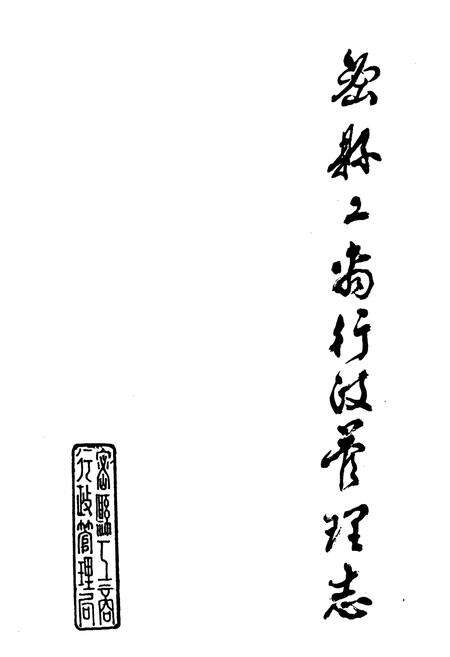 密縣工商行政管理志
密縣工商
行政管理局